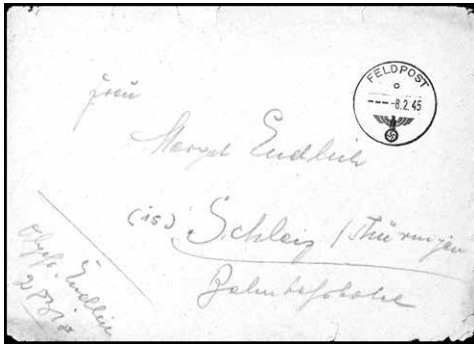 FELDPOST
c
----8.2.45
Frau
Endlich
(15) Schleiz / Thüringen
Bahnhofshotel
Endlich